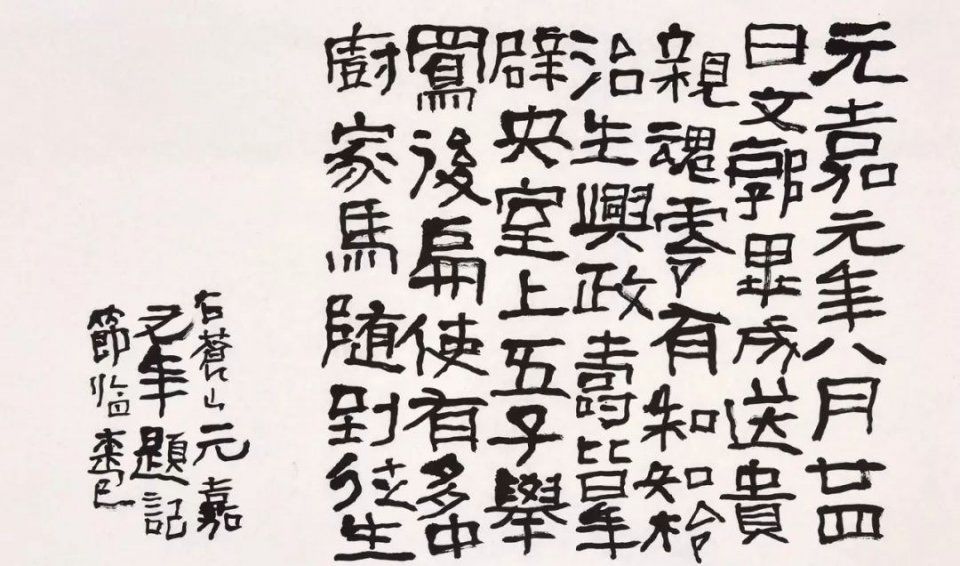 元嘉元年八月廿四
日文郭畢成送貴
親魂零有知知柃
治生興政壽皆年
辟央室上五子舉
後扁使有多中
廚家馬随到徃生
右蒼山元嘉
元年題記
節临